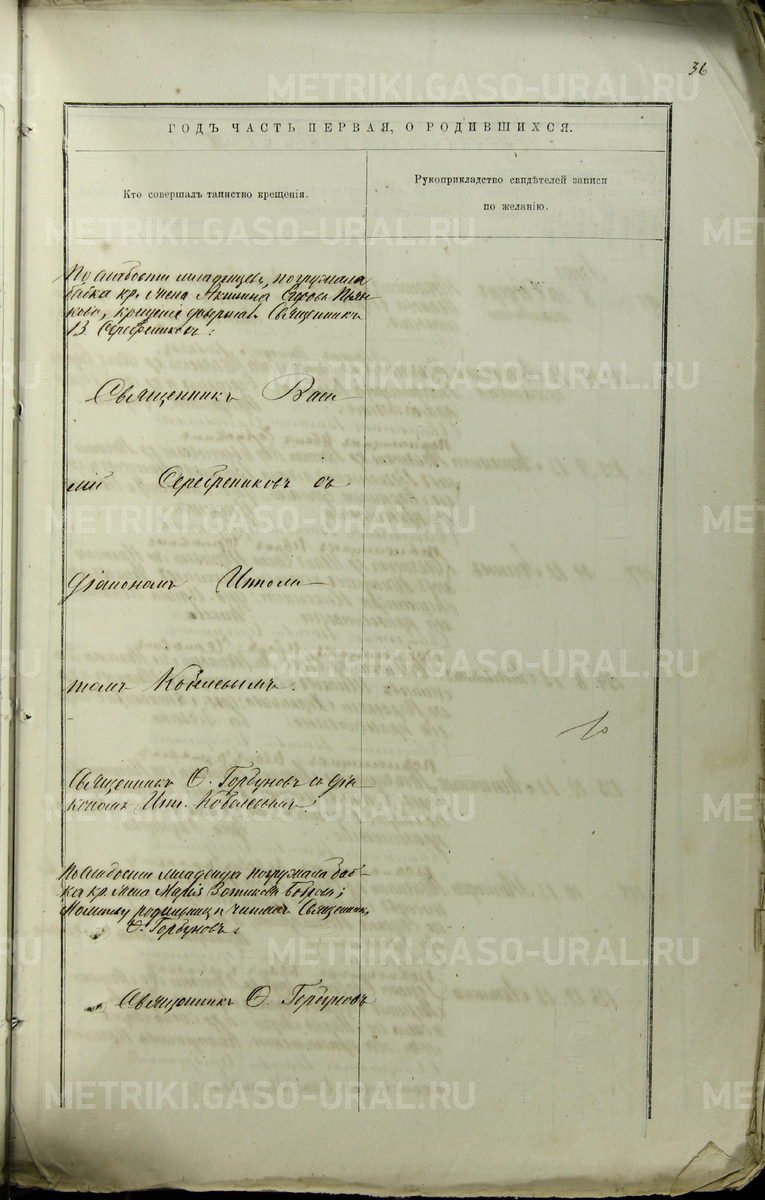 36
ГОДЪ ЧАСТЬ ПЕРВАЯ, О РОДИВШИХСЯ.
Кто совершалъ таинство крещенія.
Рукоприкладство свидѣтелей записи
по желанію.
По слабости младенцевъ, погружала
бабка кр. жена Акилина
крещеніе Священникъ
В. Серебрениковъ.
Священникъ Васи-
лій Серебрениковъ съ
діакономъ Иппoли-
томъ Ковалевымъ.
Священникъ Ѳ. Горбуновъ съ діа-
кономъ Ип. Ковалевымъ.
По слабости младенца погружала баб-
ка кр. жена Марія
Молитву родильницѣ читалъ Священник
Ѳ. Горбуновъ.
Священникъ Ѳ. Горбуновъ
METRIKI.GASO-URAL.RU